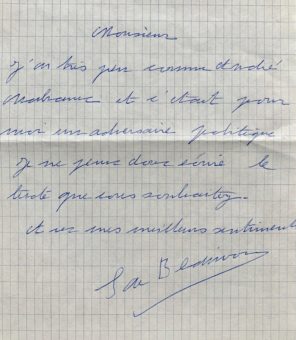 Monsieur
J'ai très peu connu André
Malraux et c'était pour
moi un adversaire politique
Je ne peux donc écrire le
texte que vous souhaitez.
mes meilleurs sentiments
S de Beauvoir